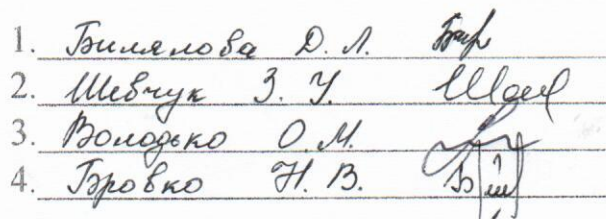 1. Билялова Д. Л.
2. Шевчук З. У.
3. Володько О. М.
4. Бровко Н. В.